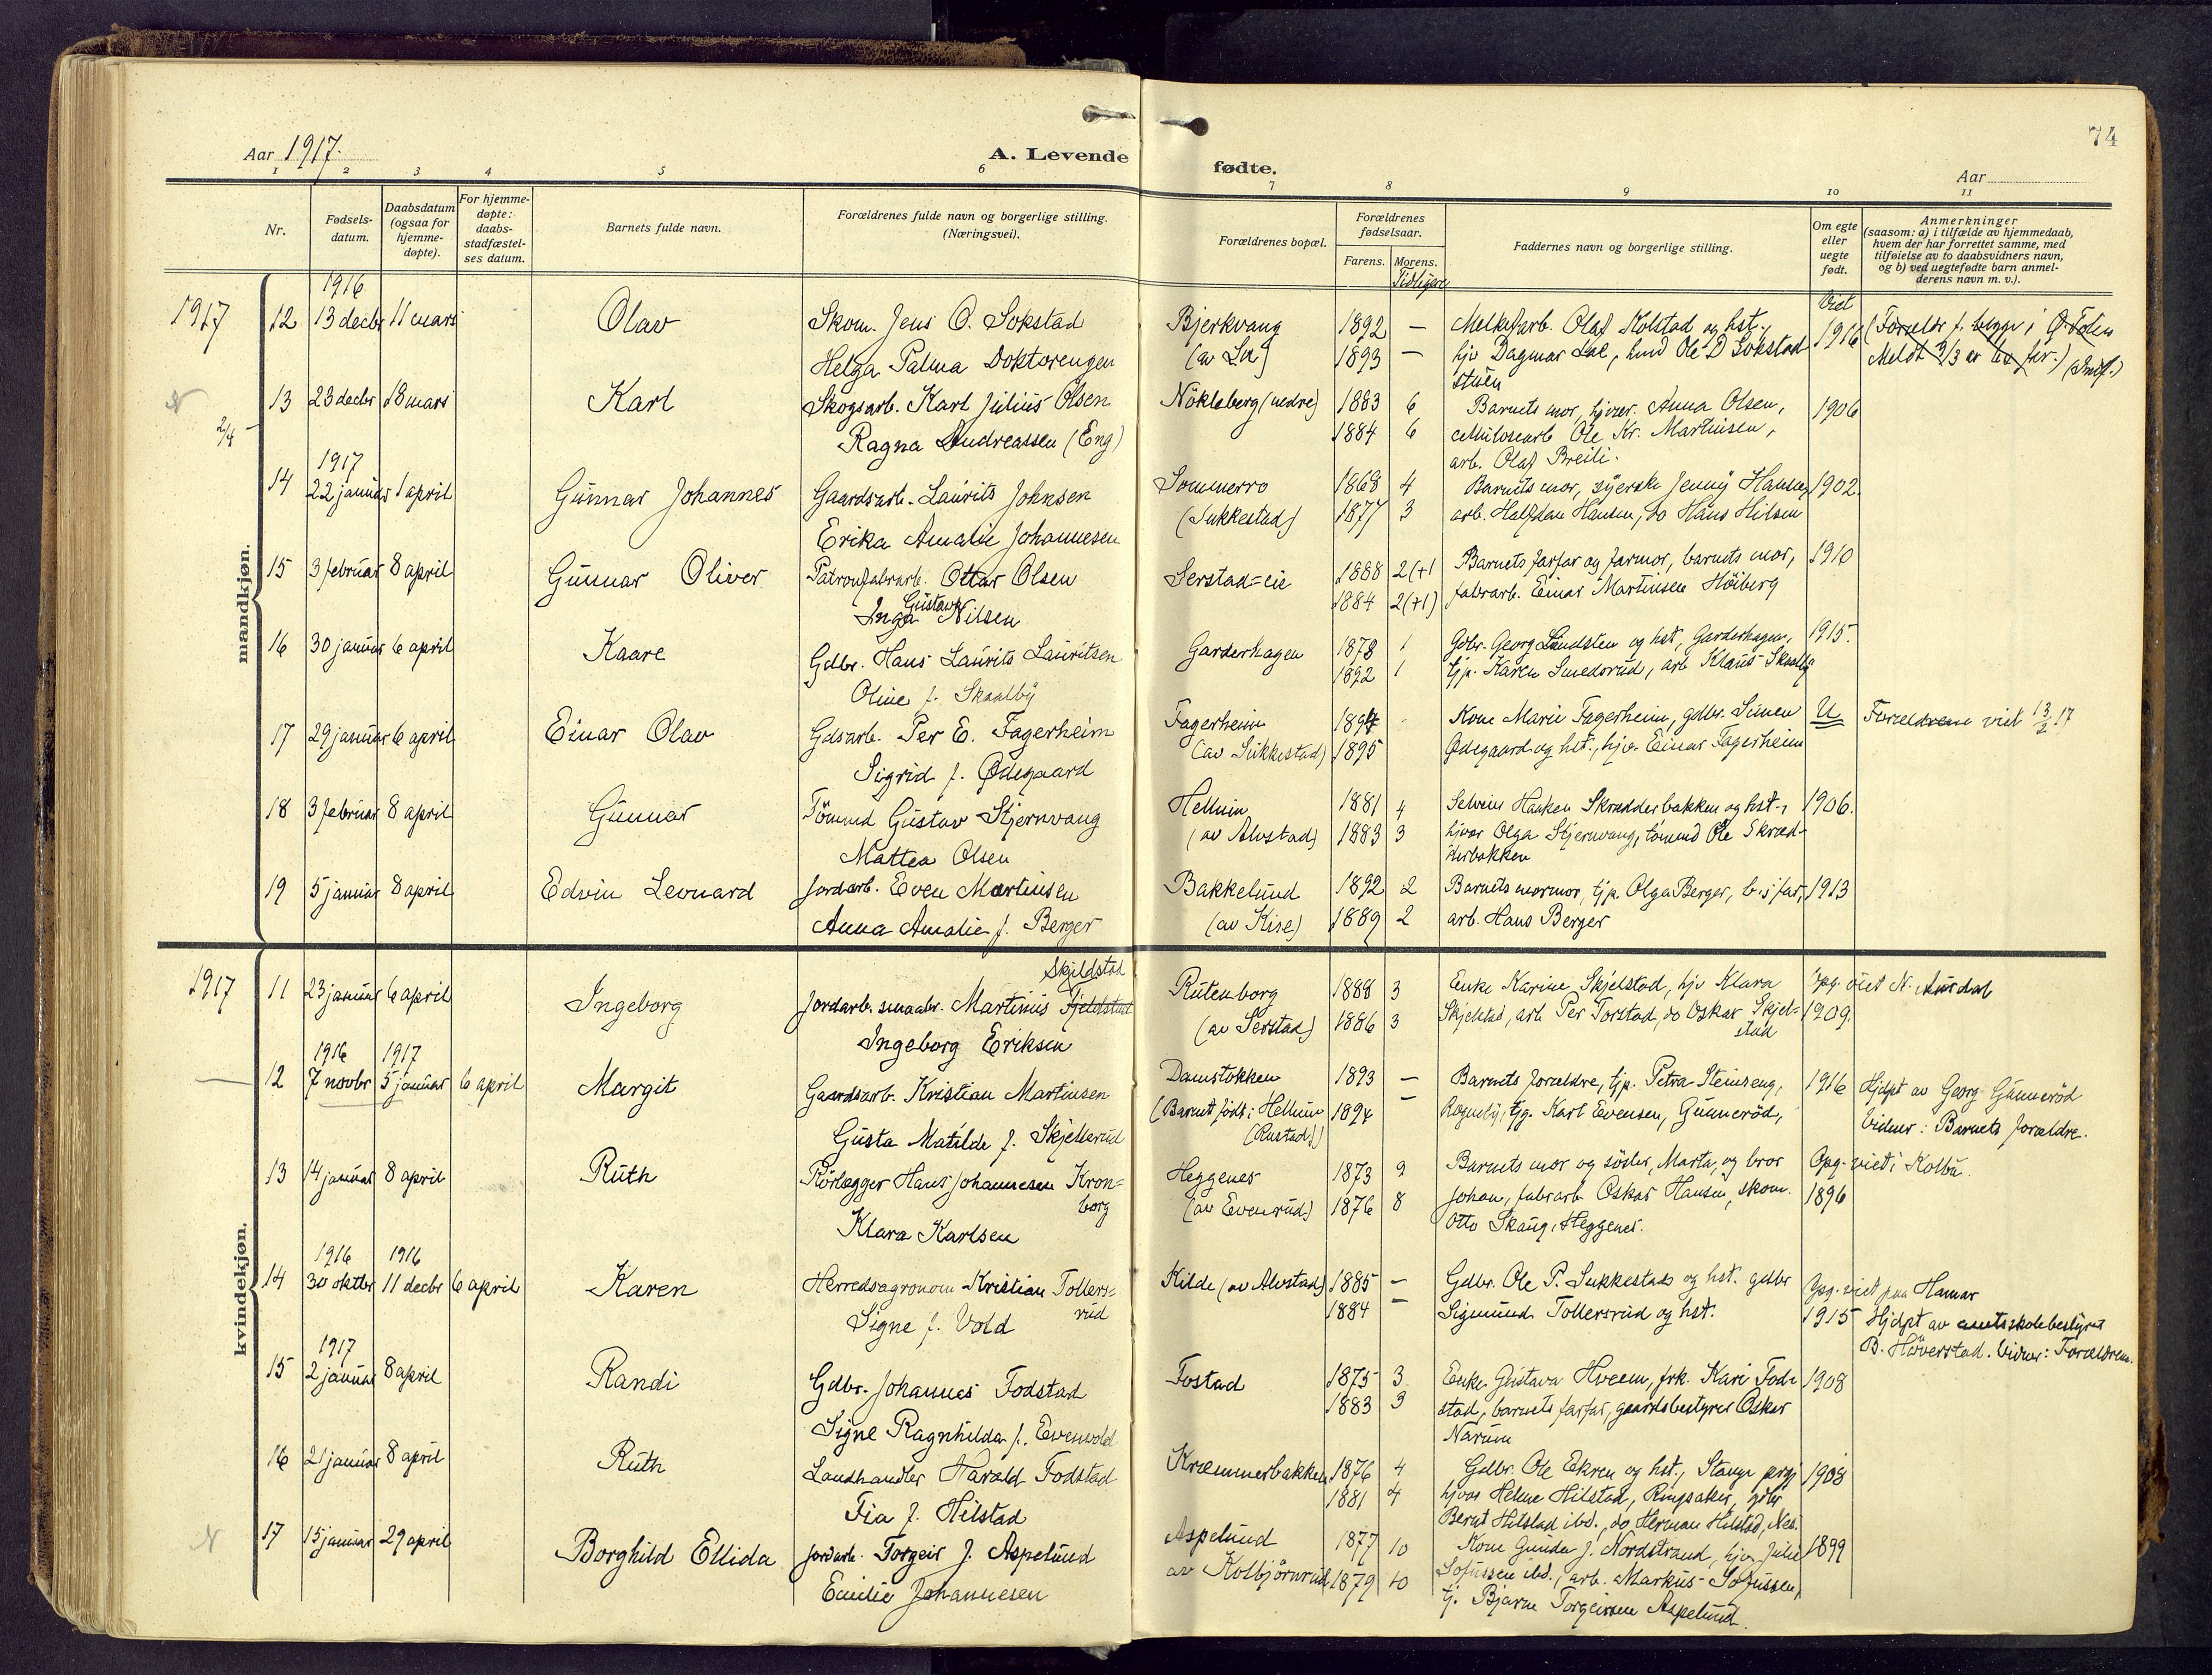 74
Aar 1917.
A. Levende fødte.
Aar
1 2 3 4 5 6 7 8 9 10 11
Nr.
Fødsels-
datum.
Daabsdatum
(ogsaa for
hjemme-
døpte).
For hjemme-
døpte:
daabs-
stadfæstel-
ses datum.
Barnets fulde navn.
Forældrenes fulde navn og borgerlige stilling.
(Næringsvei).
Forældrenes bopæl.
Forældrenes
fødselsaar.
Farens. Morens.
Tidligere
Faddernes navn og borgerlige stilling.
Om egte
eller
uegte
født.
Anmerkninger
(saasom: a) i tilfælde av hjemmedaab,
hvem der har forrettet samme, med
tilføielse av to daabsvidners navn,
og b) ved uegtefødte barn anmel-
derens navn m. v.).
mandkjøn.
1917
1916
12 13 decbr 11 mars Olav
Skom. Jens O. Sokstad
Helga Palma Doktorengen
Bjerkvang
1892 —
1893 —
Melkefarb. Olaf Kolstad og hst.,
hjv Dagmar Lal, hmd Ole D Sokstad
stuen
Viet
1916
(Forældr f. begge i Ø. Toten
N
2/4
13 23 decbr 18 mars Karl
Skogsarb. Karl Julius Olsen
Ragna Andreassen (Eng)
Nökleberg (nedre)
1883 6
1884 6
Barnets mor, hjver. Anna Olsen,
cellulosearb Ole Kr. Martinsen,
arb. Olaf Breili.
1906
1917
14 22 januar 1 april Gunnar Johannes
Gaardsarb. Laurits Johnsen
Erika Amalie Johannesen
Sommerro
(Sukkestad)
1868 4
1877 3
Barnets mor, syerske Jenny Hansen,
arb. Halfdan Hansen, do Hans Nilsen
1902.
15 3 februar 8 april Gunnar Oliver
Patronfabrarb. Ottar Olsen
Gustava
Inga Nilsen
Serstad=eie
1888 2(+1
1884 2(+1)
Barnets farfar og farmor, barnets mor,
fabrarb. Einar Martinsen Höiberg
1910
16 30 januar 6 april Kaare
Gdbr. Hans Laurits Lauritsen
Oline f. Skaalby
Garderhagen
1878 1
1892 1
Gdbr. Georg Lundsten og hst, Garderhagen,
tjp. Karen Smedsrud, arb Klaus Skaalby
1915.
17 29 januar 6 april Einar Olav
Gdsarb. Per E. Fagerheim
Sigrid f. Ødegaard
Fagerheim
(av Sukkestad)
1894
1895
Kone Marie Fagerheim, gdbr. Simen
Ødegaard og hst., hjv. Einar Fagerheim
U
Forældrene viet 13/2 17
18 3 februar 8 april Gunnar
Tömmd Gustav Stjernvang
Mattea Olsen
Hellum
(av Alvstad)
1881 4
1883 3
Selveier Haaken Skrædderbakken og hst.,
hjvær Olga Stjernvang, tömmd Ole Skræd-
derbakken
1906.
19 5 januar 8 april Edvin Leonard
Jordarb. Even Martinsen
Anna Amalie f. Berger
Bakkelund
(av Kise)
1892 2
1889 2
Barnets mormor, tjp. Olga Berger, b.s far,
arb. Hans Berger
1913
kvindekjøn.
1917
11 23 januar 6 april Ingeborg
Skjeldstad
Jordarb. smaabr. Martinius Fjeldstad
Ingeborg Eriksen
Rutenborg
(av Serstad)
1888 3
1886 3
Enke Karine Skjelstad, hjv Klara
Skjelstad, arb Per Torstad, do Oskar Skjel-
stad
Opg. viet N. Aurdal
1909.
1916 1917
12 7 novbr 5 januar 6 april Margit
Gaardsarb. Kristian Martinsen
Gusta Matilde f. Skjellerud
Damstokken
(Barnet født i Hellum
(Rustad))
1893 —
1894 —
Barnets forældre, tjp. Petra Steinseng,
Rogneby, tjg. Karl Evensen, Gunneröd,
1916
Hjdpt av Georg Gunneröd
Vidner: Barnets forældre.
13 14 januar 8 april Ruth
Rörlægger Hans Johannesen Kron=
borg
Klara Karlsen
Heggenes
(av Evenrud)
1873 9
1876 8
Barnets mor og söster, Marta, og bror
Johan, fabrarb Oskar Hansen, skom.
Otto Skaug, Heggenes.
Opg. viet i Kolbu.
1896
1916 1916
14 30 oktbr 11 decbr 6 april Karen
Herredsagronom Kristian Tollers=
rud
Signe f. Vold
Kilde (av Alvstad)
1885 —
1884 —
Gdbr. Ole P. Sukkestad og hst. gdbr
Sigmund Tollersrud og hst.
Opg. viet paa Hamar
1915
Hjdpt av amtsskolebestyrer
B. Höverstad. Vidner: Forældrene.
1917
15 2 januar 8 april Randi
Gdbr. Johannes Fodstad
Signe Ragnhilda f. Evenvold
Fostad
1875 3
1883 3
Enke Gustava Hveem, frk. Kari Fod-
stad, barnets farfar, gaardsbestyrer Oskar
Narum
1908
16 21 januar 8 april Ruth
Landhandler Harald Fodstad
Tia f. Hilstad
Kræmmerbakken
1876 4
1881 4
Gdbr. Ole Ekren og hst., Stange prgj
hjvær Helene Hilstad, Ringsaker, gdbr
Bernt Hilstad ibd., do Herman Hilstad, Nes.
1908
N
17 15 januar 29 april Borghild Ellida
Jordarb. Torgeir J. Aspelund
Emilie Johannesen
Aspelund
av Kolbjörnrud
1877 10
1879 10
Kone Gunda J. Nordstrand, hjv Julie
Sofussen ibd., arb. Markus Sofussen,
tj. Bjarne Torgeirsen Aspelund.
1899